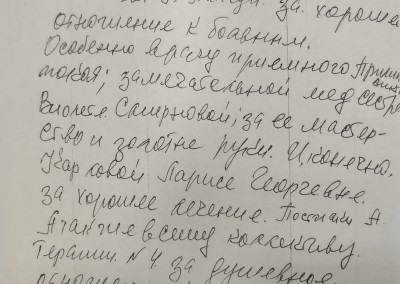 за. хорошее
отношение к боавным.
Особенно врачу приемного
покоя; замечательной мед сестре
Виолете. Смирновой; за ее мастер-
ство и золотые руки. И конечно.
Ларисе Георгевне.
за хорошее лечение.
А также всему коллективу.
Терапии. № 4. за душевное